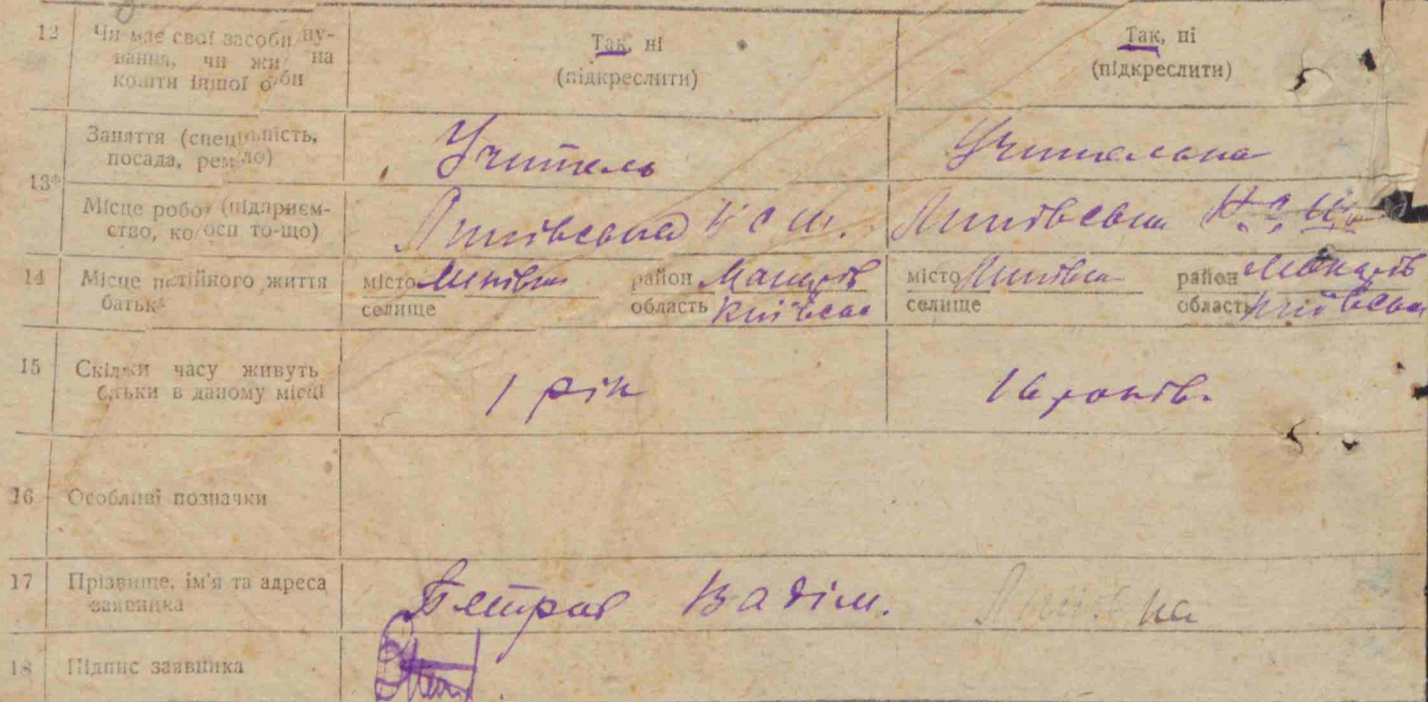 12 Чи має свої засоби
вання, чи жи на
кошти іншої
Так, ні
(підкреслити)
Так, ні
(підкреслити)
13* Заняття (спец ність,
посада, рем ло)
Учитель
Учителька
Місце робо (підприєм-
ство, ко то-що)
Липівська Н С Ш.
Липівська Н.С.Ш.
14 Місце життя
батьк
місто Липівка район Макарів
селище область Київська
місто Липівка район Макарів
селище область Київська
15 Скільки часу живуть
батьки в даному місці
1 рік
16 років.
16 Особливі позначки
17 Прізвище, ім'я та адреса
заявника
Петров Вадім.
18 Підпис заявника